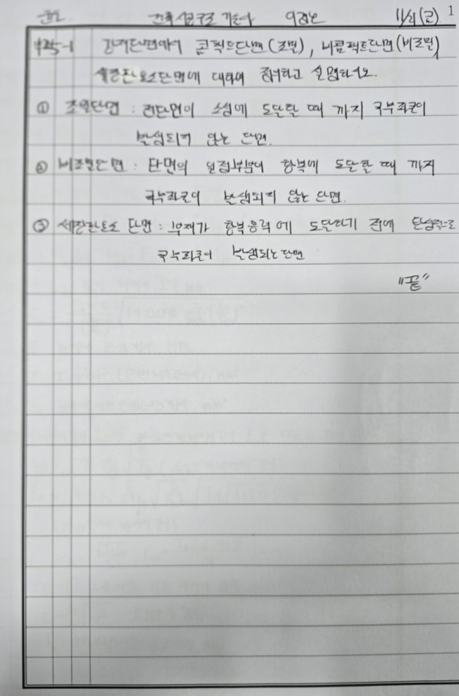 건축구조기술사 11/21(금) 1
125-1 강재단면에서 콤팩트단면(조밀), 비콤팩트단면(비조밀)
세장판요소단면에 대하여 정의하고 설명하시오.
① 조밀단면 : 전단면이 소성에 도달할 때 까지 국부좌굴이
발생되지 않는 단면.
② 비조밀단면 : 단면의 일정부분이 항복에 도달할 때 까지
국부좌굴이 발생되지 않는 단면.
③ 세장판요소 단면 : 부재가 항복응력에 도달하기 전에 탄성으로
국부좌굴이 발생되는 단면
"끝"